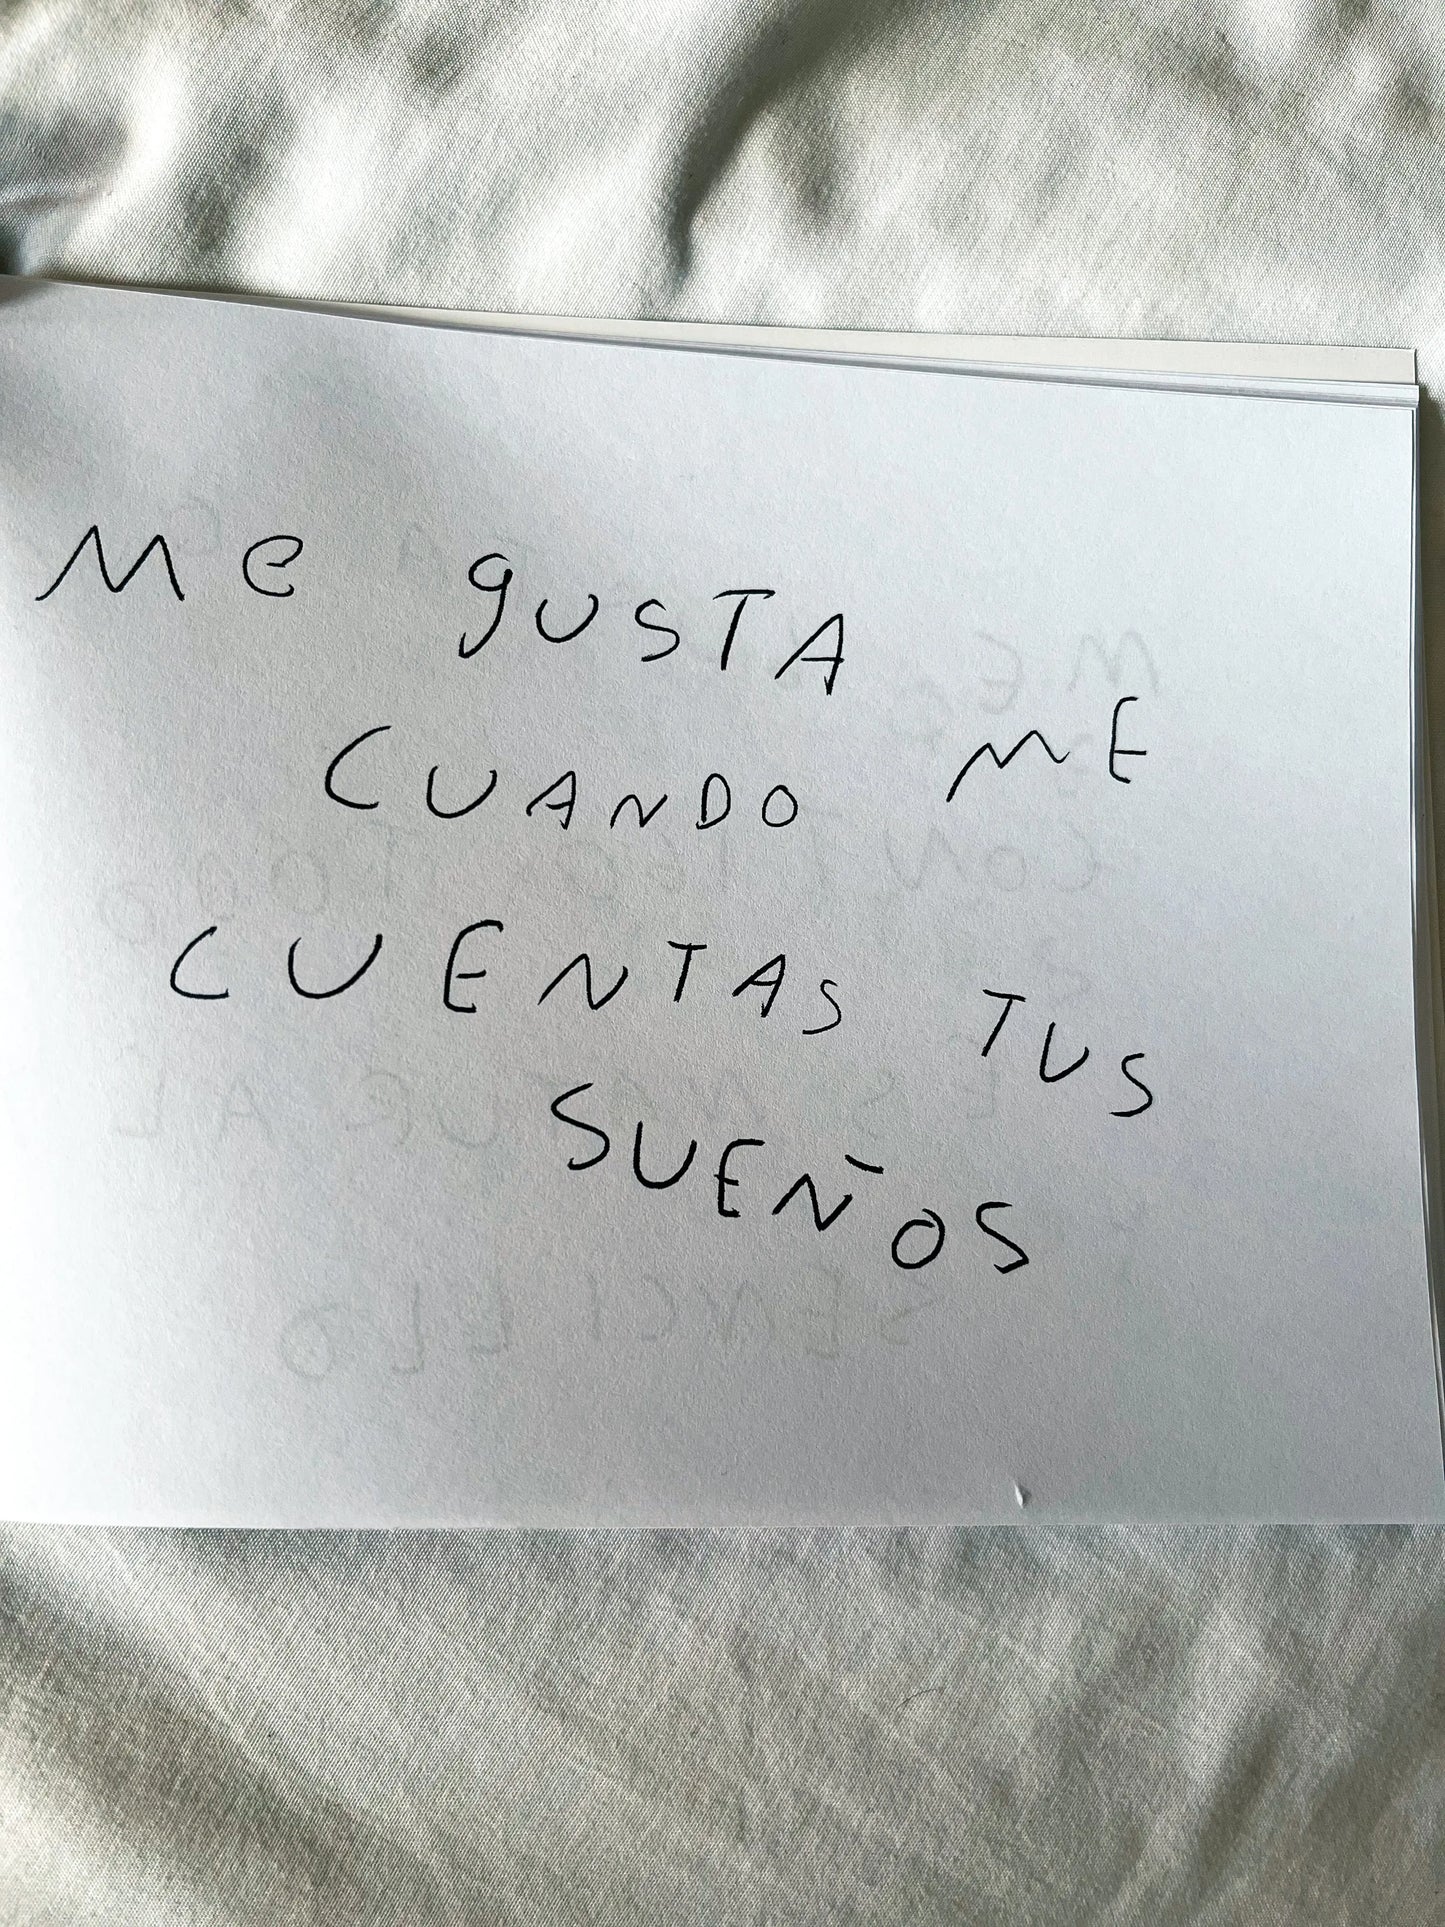 Me gUSTA
CUANDO ME
CUENTAS TUS
SUEÑOS